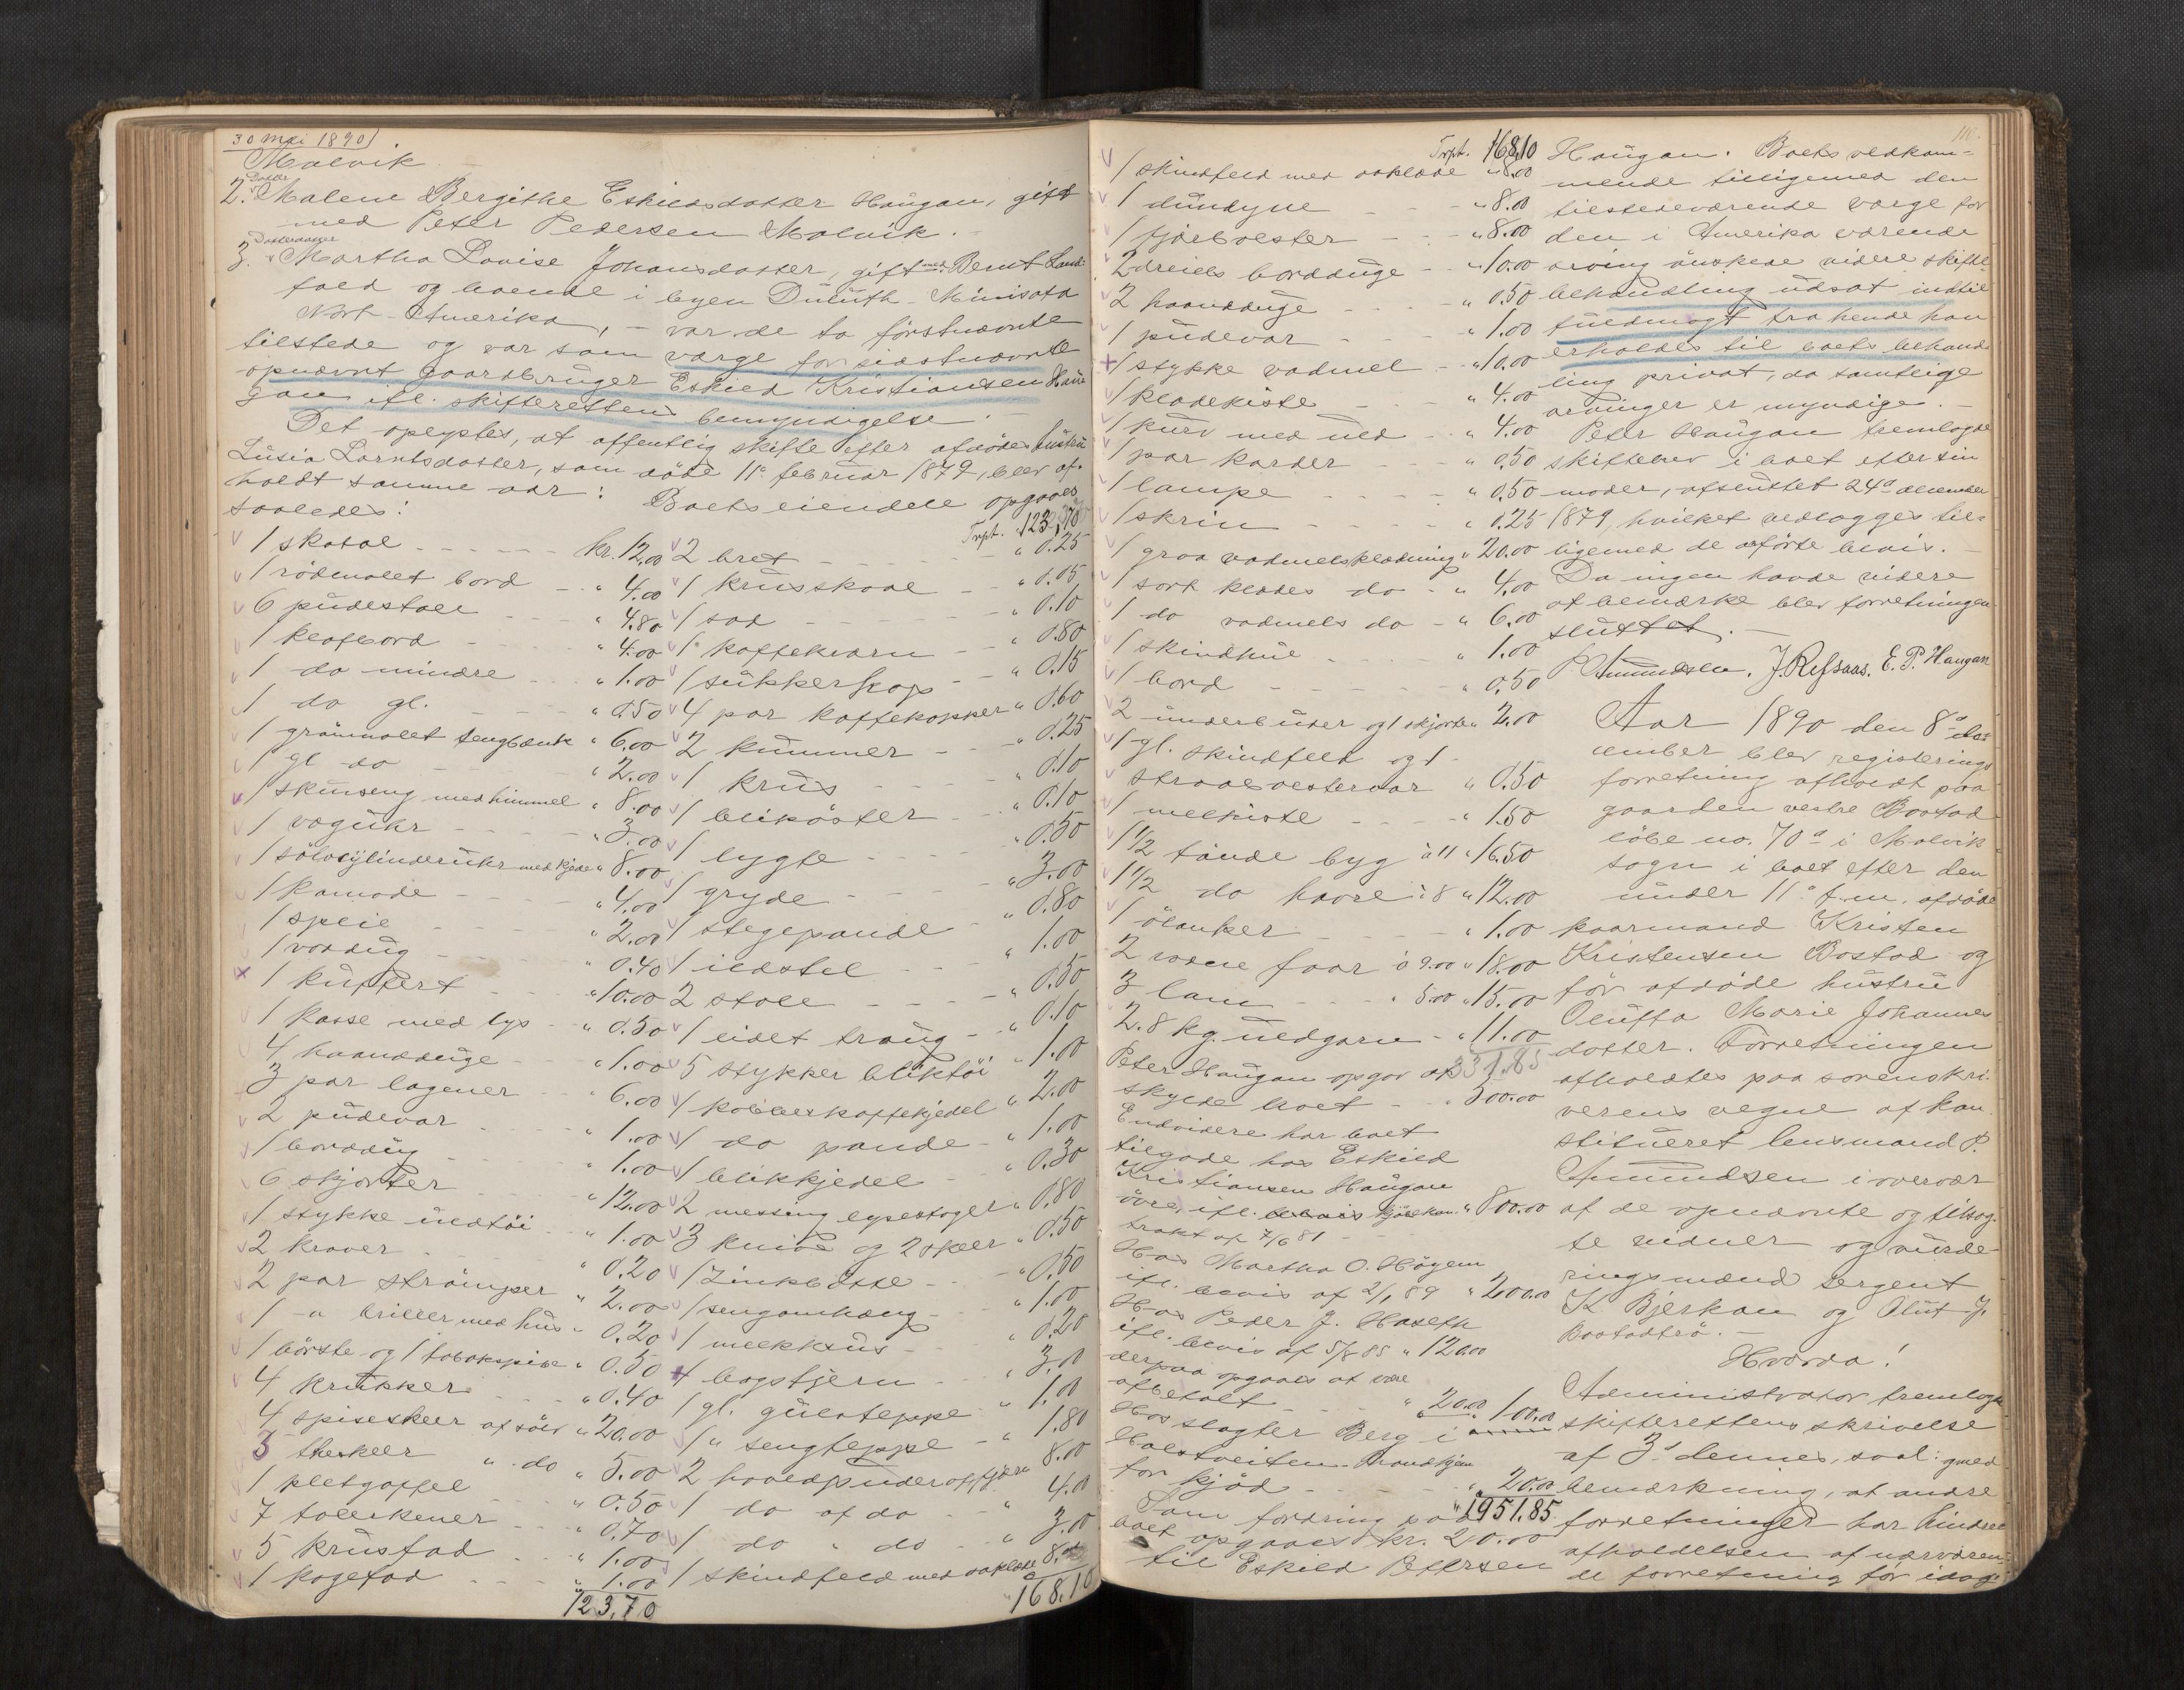 30 Mai 1890
Malvik
Datter
2. Malene Bergithe Eskildsdatter Haugan, gift
med Peter Pedersen Malvik.
Datterdatter
3. Martha Lovise Johansdatter, gift med Bernt Land-
fald og boende i byen Duluth Minisota
Nort-Amerika, - var de to förstnævnte
tilstede og var som værge for sidstnævnte
opnævnt gaardbruger Eskild Kristiansen Hau-
gan ifl. skifterettens bemyndigelse.
Det oplystes, at offentlig skifte efter afdöde hustru
Lusia Larntsdatter, som döde 11te februar 1879, blev af-
holdt samme aar: Boets eiendele opgaves
saaledes:
1 skatol - - - kr. 12.00
1 rödmalet bord - - " 4.00
6 pudestole - - " 4.80
1 klafbord - - " 4.00
1 do mindre - - " 1.00
1 do gl. - - " 0.50
1 grönmalet sengbænk " 6.00
1 gl do - - " 2.00
1 skuvseng med himmel " 8.00
1 væguhr - - " 3.00
1 sölvsylinderuhr med kjede " 8.00
1 komode - - " 4.00
1 speil - - " 2.00
1 voxdug - - " 0.40
1 kuffert - - " 10.00
1 kasse med lys - " 0.50
4 haandduge - - " 1.00
3 par lagener - - " 6.00
2 pudevar - - " 1.00
1 borddug - - " 1.00
6 skjorter - - " 12.00
1 stykke uldtöi - " 1.00
2 kraver - - " 0.20
2 par strömper " 2.00
1 -"- briller med hus " 0.20
1 börste og 1 tobakspibe " 0.50
4 krukker - - " 0.40
4 spiseskeer af sölv " 20.00
3 theskeer " do " 5.00
1 pletgaffel - - " 0.50
7 tallerkener - - " 0.70
5 krusfad - - " 1.00
1 kagefad - - " 1.00
123.70
Trpt. 123,70
2 bret - - " 0.25
1 krusskaal - - " 0.05
1 sad - - " 0.10
1 kaffekværn - - " 0.80
1 sukkerskop - - " 0.15
4 par kaffekopper " 0.60
2 kummer - - " 0.25
1 krus - - " 0.10
1 bliköster - - " 0.10
1 lygte - - " 0.50
1 gryde - - " 3.00
1 stegepande - - " 0.80
1 ildstel - - " 1.00
2 stole - - " 0.50
1 eidet traug - - " 0.10
5 stykker bliktöi " 1.00
1 kobberkaffekjedel " 2.00
1 do pande - " 1.00
1 blikkjedel - " 0.30
2 messing lysestager " 0.80
3 knive og 2 skeer " 0.50
1 Zinkbötte - - " 0.50
1 sengomhæng - - " 1.00
1 melkkrus - - " 0.20
4 bogstjern - - " 3.00
1 gl. gulvteppe " 1.00
1 " sengteppe - " 1.80
2 hovedpuder af fjær 8.00
1 do af do - " 4.00
1 do " do - " 3.00
1 skindfeld med aaklæde 8.00
168.10
Trpt. 168.10
1 skindfeld med aaklæde " 8.00
1 dundyne - - " 8.00
1 fjærbolster - - " 8.00
2 dreiels bordduge - " 10.00
2 haandduge - - " 0.50
1 pudevar - - " 1.00
1 stykke vadmel - " 10.00
1 klædekiste - - " 4.00
1 kurv med uld - " 4.00
1 par karder - - " 0.50
1 lampe - - " 0.50
1 skrin - - " 0.25
1 graa vadmelsklædning " 20.00
1 sort klædes do - " 4.00
1 do vadmels do - " 6.00
1 skindhue - - " 1.00
1 bord - - " 0.50
2 underbuxer og 1 skjorte " 2.00
1 gl. skindfeld og 1
straabolstervar " 0.50
1 melkiste - - " 1.50
1 1/2 tönde byg à 11 " 16.50
1 1/2 do havre à 8 " 12.00
1 ölanker - - " 1.00
2 voxne faar à 9.00 " 18.00
3 lam - - " 5.00 " 15.00
2.8 kg. uldgarn - " 11.00
331.85
Peter Haugan opgav at
skylde boet - - " 500.00
Endvidere har boet
tilgode hos Eskild
Kristiansen Haugan
övre, ifl. bevis kjöbekon- " 800.00
trakt af 7/6 81
Hos Martha O. Högem
ifl. bevis af 2/1 89 " 200.00
Hos Peder J. Haseth
ifl. bevis af 5/8 85 " 120.00
derpaa opgaves at være
afbetalt - - " 20.00 100.00
Hos slagter Berg i
Trondhjem
for kjöd - - " 20.00
" 1951.85
Som fordring paa
boet opgaves kr. 20.00
til Eskild Petersen
Haugan. Boets vedkom-
mende tilligemed den
tilstedeværende værge for
den i Amerika værende
arving önskede videre skifte-
behandling udsat indtil
fuldmagt fra hende kan
erholdes til boets behand-
ling privat, da samtlige
arvinger er myndige. -
Peter Haugan fremlagde
skiftebrev i boet efter sin
moder, afsluttet 24de december
1879, hvilket vedlægges til-
ligemed de anförte bevis. -
Da ingen havde videre
at bemærke blev forretningen
sluttet. -
P. Amundsen. J. Refsaas. E. P. Haugan
Aar 1890 den 8de de-
cember blev registrerings
forretning afholdt paa
gaarden vestre Bostad
löbe no. 70a i Malvik
sogn i boet efter den
under 11te f. m. afdöde
kaarmand Kristen
Kristensen Bostad og
för afdöde hustru
Oluffa Marie Johannes
datter. Forretningen
afholdtes paa sorenskri-
verens vegne af kon-
stitueret lensmand P.
Amundsen i overvær
af de opnævnte og tiltag-
te vidner og vurde-
ringsmænd sergent
K. Bjerkan og Oluf J.
Bostadtrö. -
Hvorda!
Administrator fremlagde
skifterettens skrivelse
af 3de dennes, saal: gmed
bemærkning, at andre
forretninger har hindret
afholdelsen af nærværen-
de forretning för idag.